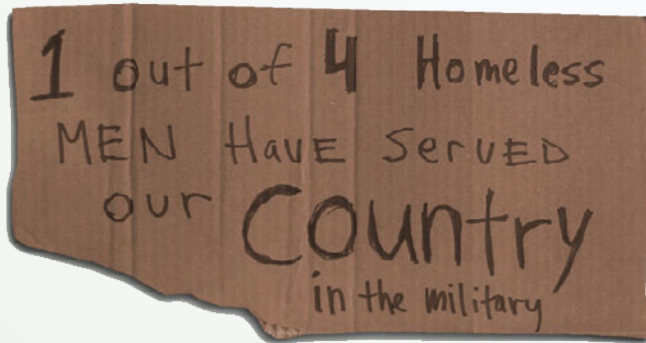 1 out of 4 Homeless
MEN HavE ServED
our Country
in the military